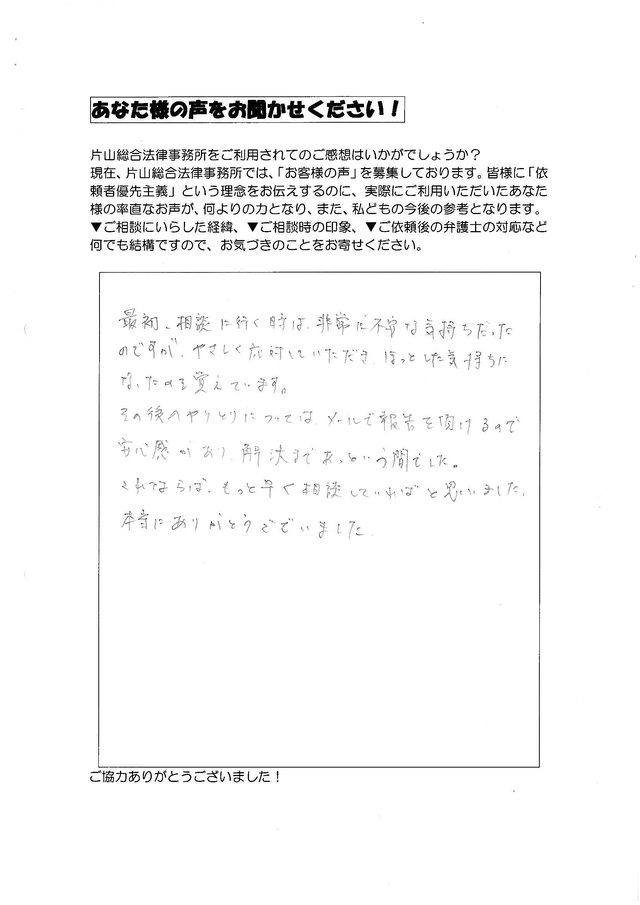 あなた様の声をお聞かせください!
片山総合法律事務所をご利用されてのご感想はいかがでしょうか?
現在、片山総合法律事務所では、「お客様の声」を募集しております。皆様に「依
頼者優先主義」という理念をお伝えするのに、実際にご利用いただいたあなた
様の率直なお声が、何よりの力となり、また、私どもの今後の参考となります。
▼ご相談にいらした経緯、▼ご相談時の印象、▼ご依頼後の弁護士の対応など
何でも結構ですので、お気づきのことをお寄せください。
最初、相談に行く時は、非常に不安な気持ちだった
のですが、やさしく応対していただき、ほっとした気持ちに
なったのを覚えています。
その後のやりとりについては、メールで報告を頂けるので
安心感があり、解決まであっという間でした。
これならば、もっと早く相談していればと思いました。
本当にありがとうございました。
ご協力ありがとうございました!